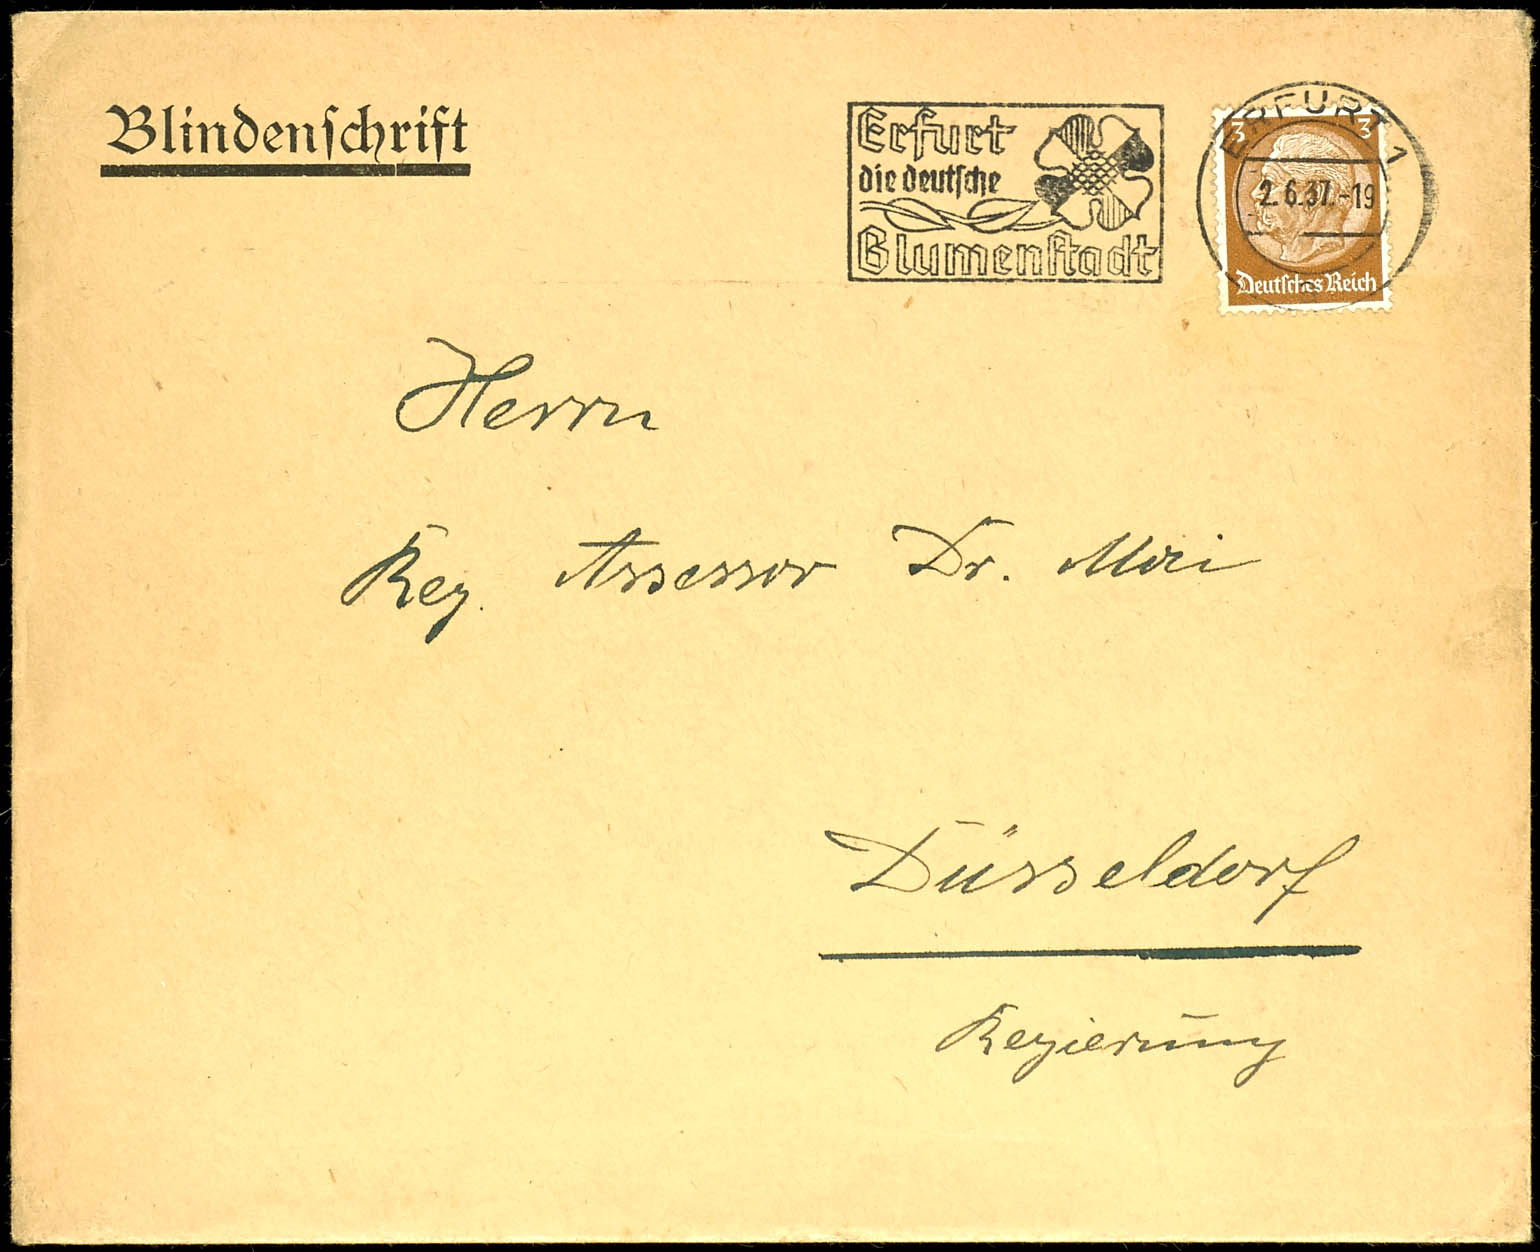 Blindenschrift
Erfurt
die deutsche
Blumenstadt
ERFURT 1
2.6.37.-19
3 3
Deutsches Reich
Herrn
Reg. Assessor Dr. Mai
Düsseldorf
Regierung